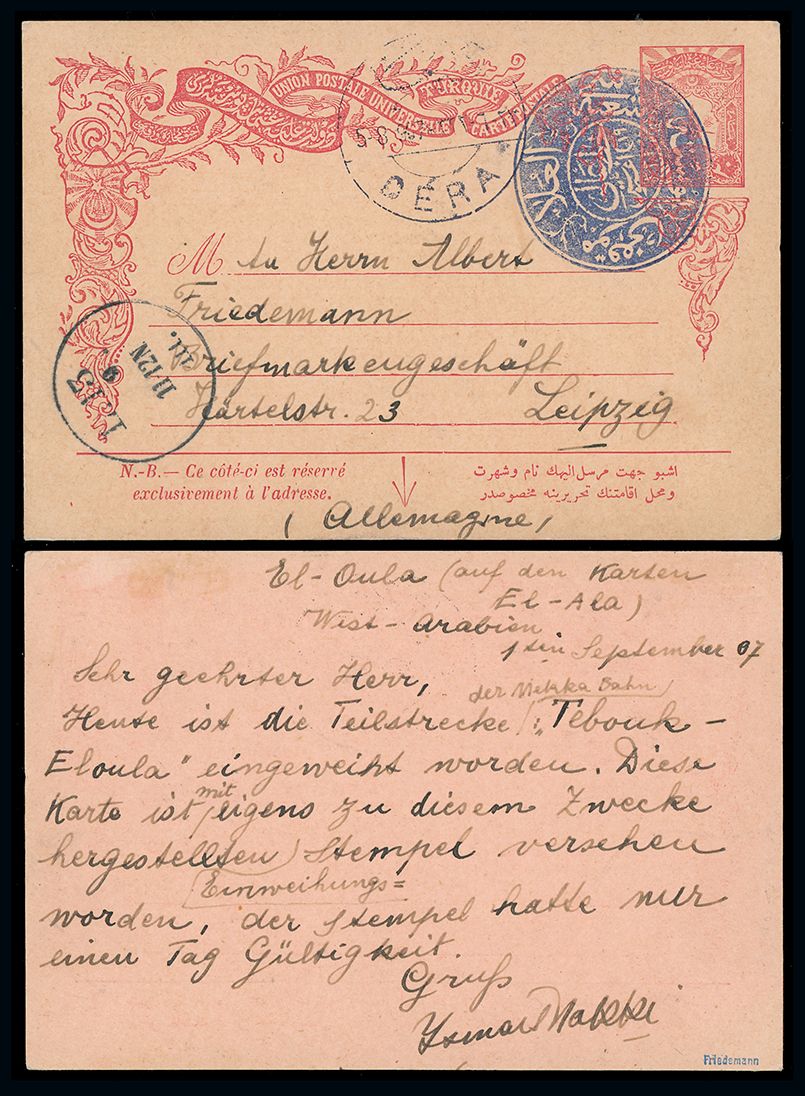 UNION POSTALE UNIVERSELLE
TURQUIE
CARTE POSTALE
DERA
M An Herrn Albert
Friedemann
Briefmarkengeschäft
Härtelstr. 23 Leipzig
L. 13
11-12N
N.-B.— Ce côté-ci est réservé
exclusivement à l'adresse.
اشبو جهت مرسل اليهك نام و شهرت
و محل اقامتنك تحريرينه مخصوصدر
(Allemagne)
El-Oula (auf den Karten
El-Ala)
West-Arabien
1ten September 07
Sehr geehrter Herr,
der Mekka Bahn
Heute ist die Teilstrecke: „Tebouk-
Eloula" eingeweiht worden. Diese
Karte ist mit eigens zu diesem Zwecke
hergestellten Stempel versehen
Einweihungs=
worden, der Stempel hatte nur
einen Tag Gültigkeit.
Gruß
Friedemann